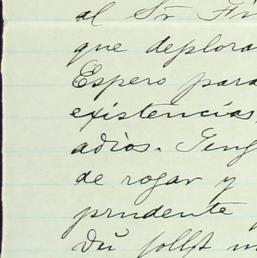 al Sr Fir
que deplora
Espero para
existencias,
adios. Teng
de rogar y
prudente
Du sollst